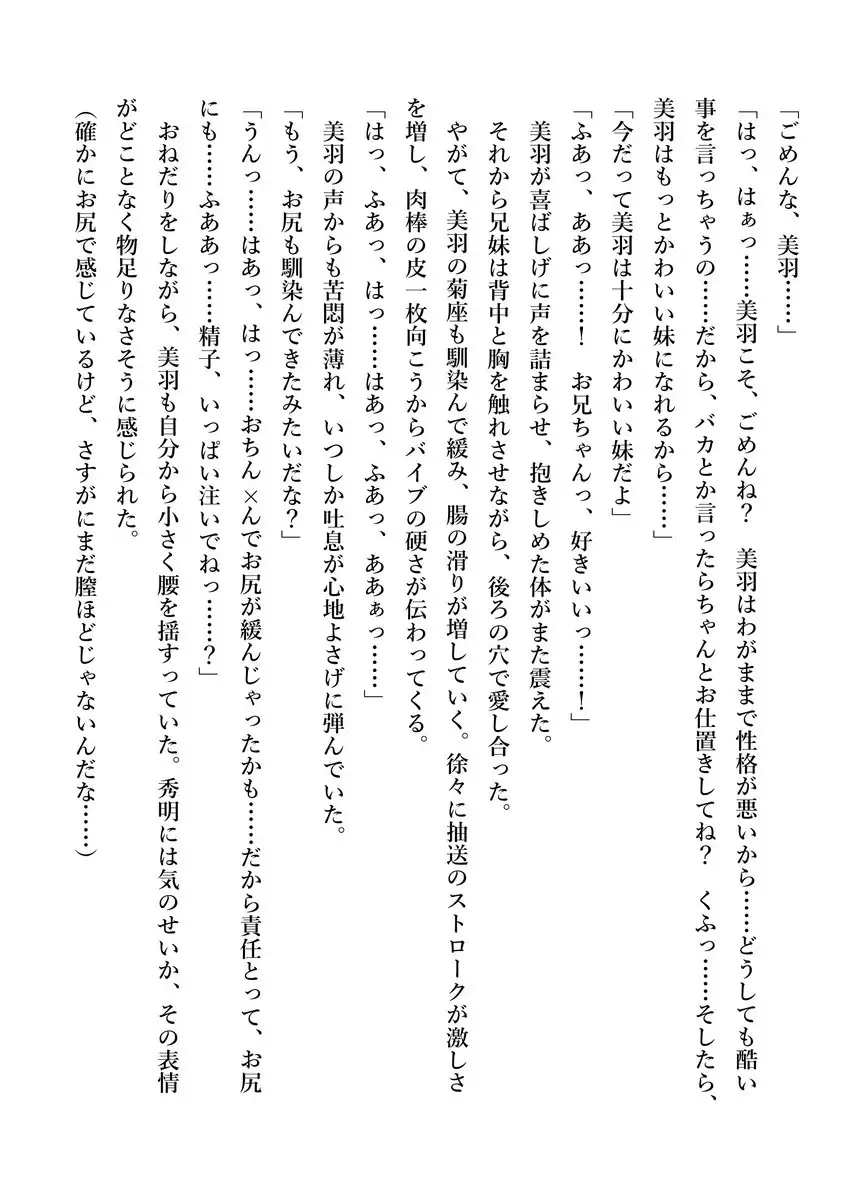 「ごめんな、美羽……」
「はっ、はぁっ……美羽こそ、ごめんね？　美羽はわがままで性格が悪いから……どうしても酷い
事を言っちゃうの……だから、バカとか言ったらちゃんとお仕置きしてね？　くふっ……そしたら、
美羽はもっとかわいい妹になれるから……」
「今だって美羽は十分にかわいい妹だよ」
「ふあっ、ああっ……！　お兄ちゃんっ、好きいいっ……！」
美羽が喜ばしげに声を詰まらせ、抱きしめた体がまた震えた。
それから兄妹は背中と胸を触れさせながら、後ろの穴で愛し合った。
やがて、美羽の菊座も馴染んで緩み、腸の滑りが増していく。徐々に抽送のストロークが激しさ
を増し、肉棒の皮一枚向こうからバイブの硬さが伝わってくる。
「はっ、ふあっ、はっ……はあっ、ふあっ、ああぁっ……」
美羽の声からも苦悶が薄れ、いつしか吐息が心地よさげに弾んでいた。
「もう、お尻も馴染んできたみたいだな？」
「うんっ……はあっ、はっ……おちん×んでお尻が緩んじゃったかも……だから責任とって、お尻
にも……ふああっ……精子、いっぱい注いでねっ……？」
おねだりをしながら、美羽も自分から小さく腰を揺すっていた。秀明には気のせいか、その表情
がどことなく物足りなさそうに感じられた。
（確かにお尻で感じているけど、さすがにまだ膣ほどじゃないんだな……）